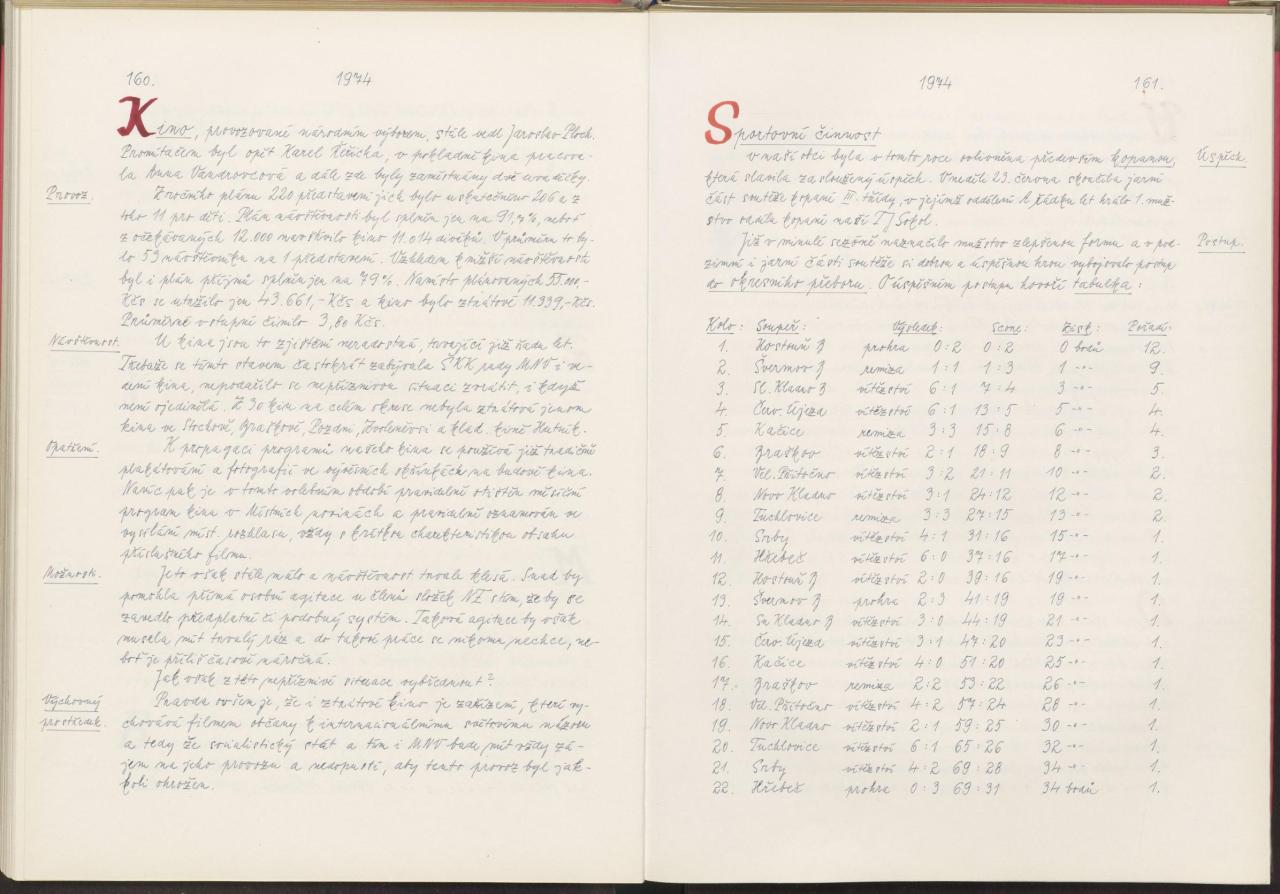 160. 1974
Kino, provozované národním výborem, stále vedl Jaroslav Ploch.
Promítačem byl opět Karel Řeřicha, v pokladně kina pracova-
la Anna Vandrovcová a dále zde byly zaměstnány dvě uvaděčky.
Provoz.
Z ročního plánu 220 představení jich bylo uskutečněno 206 a z
toho 11 pro děti. Plán návštěvnosti byl splněn jen na 91,7%, neboť
z očekávaných 12.000 navštívilo kino 11.014 diváků. V průměru to by-
lo 53 návštěvníků na 1 představení. Vzhledem k nižší návštěvnosti
byl i plán příjmů splněn jen na 79%. Namísto plánovaných 55.000,-
Kčs se utržilo jen 43.661,- Kčs a kino bylo ztrátové 11.339,- Kčs.
Průměrné vstupné činilo 3,80 Kčs.
Návštěvnost.
U kina jsou to zjištění neradostná, trvající již řadu let.
Třebaže se tímto stavem častokrát zabývala ŠKK rady MNV i ve-
dení kina, nepodařilo se nepříznivou situaci zvrátit, i když
není ojedinělá. Z 30 kin na celém okrese nebyla ztrátová jenom
kina ve Stochově, Braškově, Pozdni, Zvoleněvsi a klad. kině Hutník.
Opatření.
K propagaci programů našeho kina se používá již tradičně
plakátování a fotografií ve vývěsních skřínkách na budově kina.
Navíc pak je v tomto volebním období pravidelně otištěn měsíční
program kina v Místních novinách a pravidelně oznamován ve
vysílání míst. rozhlasu, vždy s krátkou charakteristikou obsahu
příslušného filmu.
Možnosti.
Je to však stále málo a návštěvnost trvale klesá. Snad by
pomohla přímá osobní agitace u členů složek NF s tím, že by se
zavedlo předplatné či podobný systém. Taková agitace by však
musela mít trvalý ráz a do takové práce se nikomu nechce, ne-
boť je příliš časově náročná.
Jak však z této nepříznivé situace vybřednout?
Výchovný
prostředek.
Pravda ovšem je, že i ztrátové kino je zařízení, které vy-
chovává filmem občany k internacionálnímu světovému názoru
a tedy že socialistický stát a tím i MNV bude mít vždy zá-
jem na jeho provozu a nedopustí, aby tento provoz byl jak-
koli ohrožen.
1974 161.
Sportovní činnost
Úspěch.
v naší obci byla v tomto roce ovlivněna především kopanou,
která slavila zasloužený úspěch. V neděli 23. června skončila jarní
část soutěže kopané III. třídy, v jejímž oddělení A řádku let hrálo 1. muž-
stvo oddílu kopané naší TJ Sokol.
Postup.
Již v minulé sezóně naznačilo mužstvo zlepšenou formu a v pod-
zimní i jarní části soutěže si dobrou a úspěšnou hrou vybojovalo postup
do okresního přeboru. O úspěšném postupu hovoří tabulka:
Kolo: Soupeř: Výsledek: Score: Zisk: Pořadí:
1. Hostouň B prohra 0:2 0:2 0 bodů 12.
2. Švermov B remiza 1:1 1:3 1 -"- 9.
3. Sl. Kladno B vítězství 6:1 7:4 3 -"- 5.
4. Červ. Újezd vítězství 6:1 13:5 5 -"- 4.
5. Kačice remiza 3:3 15:8 6 -"- 4.
6. Braškov vítězství 2:1 18:9 8 -"- 3.
7. Vel. Přítočno vítězství 3:2 21:11 10 -"- 2.
8. Novo Kladno vítězství 3:1 24:12 12 -"- 2.
9. Tuchlovice remiza 3:3 27:15 13 -"- 2.
10. Srby vítězství 4:1 31:16 15 -"- 1.
11. Hřebeč vítězství 6:0 37:16 17 -"- 1.
12. Hostouň B vítězství 2:0 39:16 19 -"- 1.
13. Švermov B prohra 2:3 41:19 19 -"- 1.
14. Sn Kladno B vítězství 3:0 44:19 21 -"- 1.
15. Červ. Újezd vítězství 3:1 47:20 23 -"- 1.
16. Kačice vítězství 4:0 51:20 25 -"- 1.
17. Braškov remiza 2:2 53:22 26 -"- 1.
18. Vel. Přítočno vítězství 4:2 57:24 28 -"- 1.
19. Novo Kladno vítězství 2:1 59:25 30 -"- 1.
20. Tuchlovice vítězství 6:1 65:26 32 -"- 1.
21. Srby vítězství 4:2 69:28 34 -"- 1.
22. Hřebeč prohra 0:3 69:31 34 bodů 1.